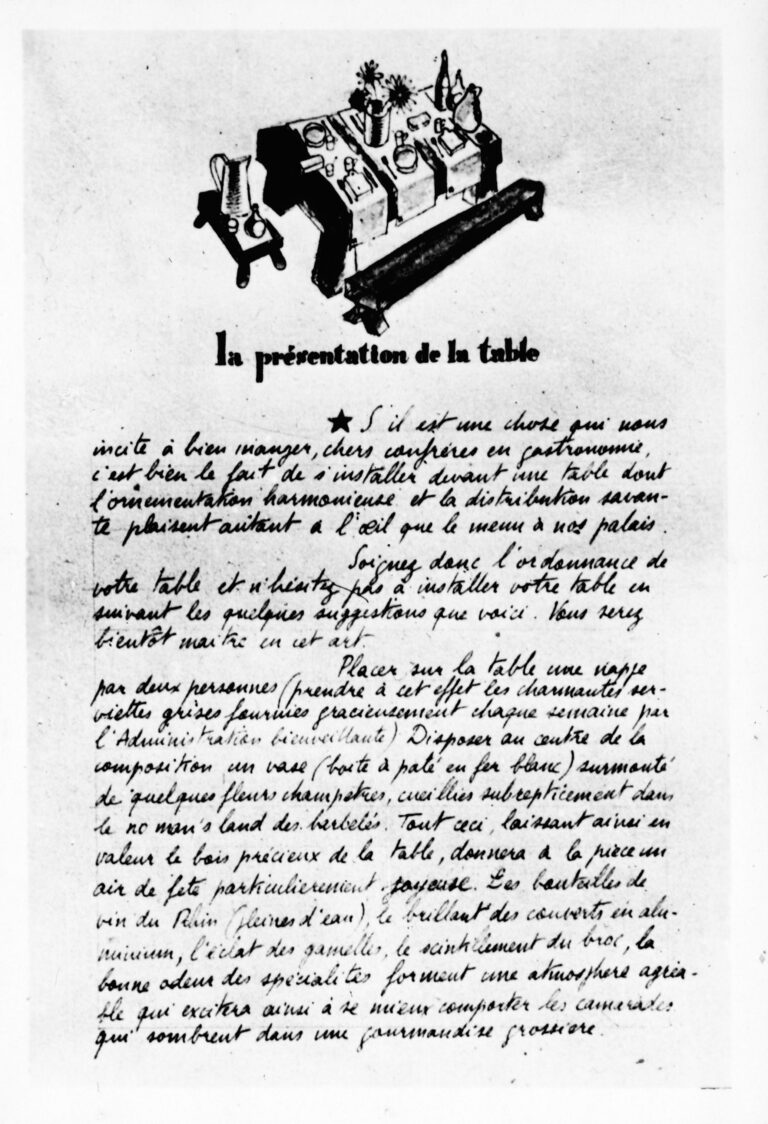 la présentation de la table
★ S'il est une chose qui nous
incite à bien manger, chers confrères en gastronomie,
c'est bien le fait de s'installer devant une table dont
l'ornementation harmonieuse et la distribution savan-
te plaisent autant a l'œil que le menu à nos palais.
Soignez donc l'ordonnance de
votre table et n'hésitez pas à installer votre table en
suivant les quelques suggestions que voici. Vous serez
bientôt maitre en cet art.
Placer sur la table une nappe
par deux personnes (prendre à cet effet les charmantes ser-
viettes grises fournies gracieusement chaque semaine par
l'Administration bienveillante) Disposer au centre de la
composition un vase (boite à paté en fer blanc) surmonté
de quelques fleurs champetres, cueillies subrepticement dans
le no man's land des barbelés. Tout ceci, laissant ainsi en
valeur le bois précieux de la table, donnera à la piece un
air de fete particulierement joyeuse. Les bouteilles de
vin du Rhin (pleines d'eau), le brillant des couverts en alu-
minium, l'éclat des gamelles, le scintillement du broc, la
bonne odeur des spécialités forment une atmosphere agréa-
ble qui excitera ainsi à se mieux comporter les camarades
qui sombrent dans une gourmandise grossiere.